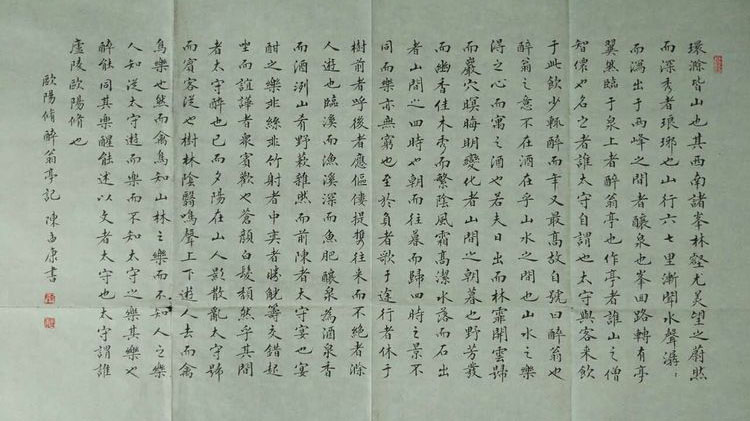 環滁皆山也其西南諸峯林壑尤美望之蔚然
而深秀者琅瑯也山行六七里漸聞水聲潺〻
而瀉出于兩峰之間者釀泉也峯回路轉有亭
翼然臨于泉上者醉翁亭也作亭者誰山之僧
智僊也名之者誰太守自謂也太守與客来飲
于此飲少輒醉而年又最高故自號曰醉翁也
醉翁之意不在酒在乎山水之間也山水之樂
得之心而寓之酒也若夫日出而林霏開雲歸
而巖穴暝晦明變化者山間之朝暮也野芳發
而幽香佳木秀而繁陰風霜高潔水落而石出
者山間之四時也朝而往暮而歸四時之景不
同而樂亦無窮也至於負者歌于途行者休于
樹前者呼後者應傴僂提攜往来而不絶者滁
人遊也臨溪而漁溪深而魚肥釀泉為酒泉香
而酒洌山肴野蔌雜然而前陳者太守宴也宴
酣之樂非絲非竹射者中奕者勝觥籌交錯起
坐而諠譁者衆賓歡也蒼顏白髮頹然乎其間
者太守醉也已而夕陽在山人影散亂太守歸
而賓客從也樹林陰翳鳴聲上下遊人去而禽
鳥樂也然而禽鳥知山林之樂而不知人之樂
人知從太守遊而樂而不知太守之樂其樂也
醉能同其樂醒能述以文者太守也太守謂誰
廬陵歐陽脩也
歐陽脩醉翁亭記 陳康書